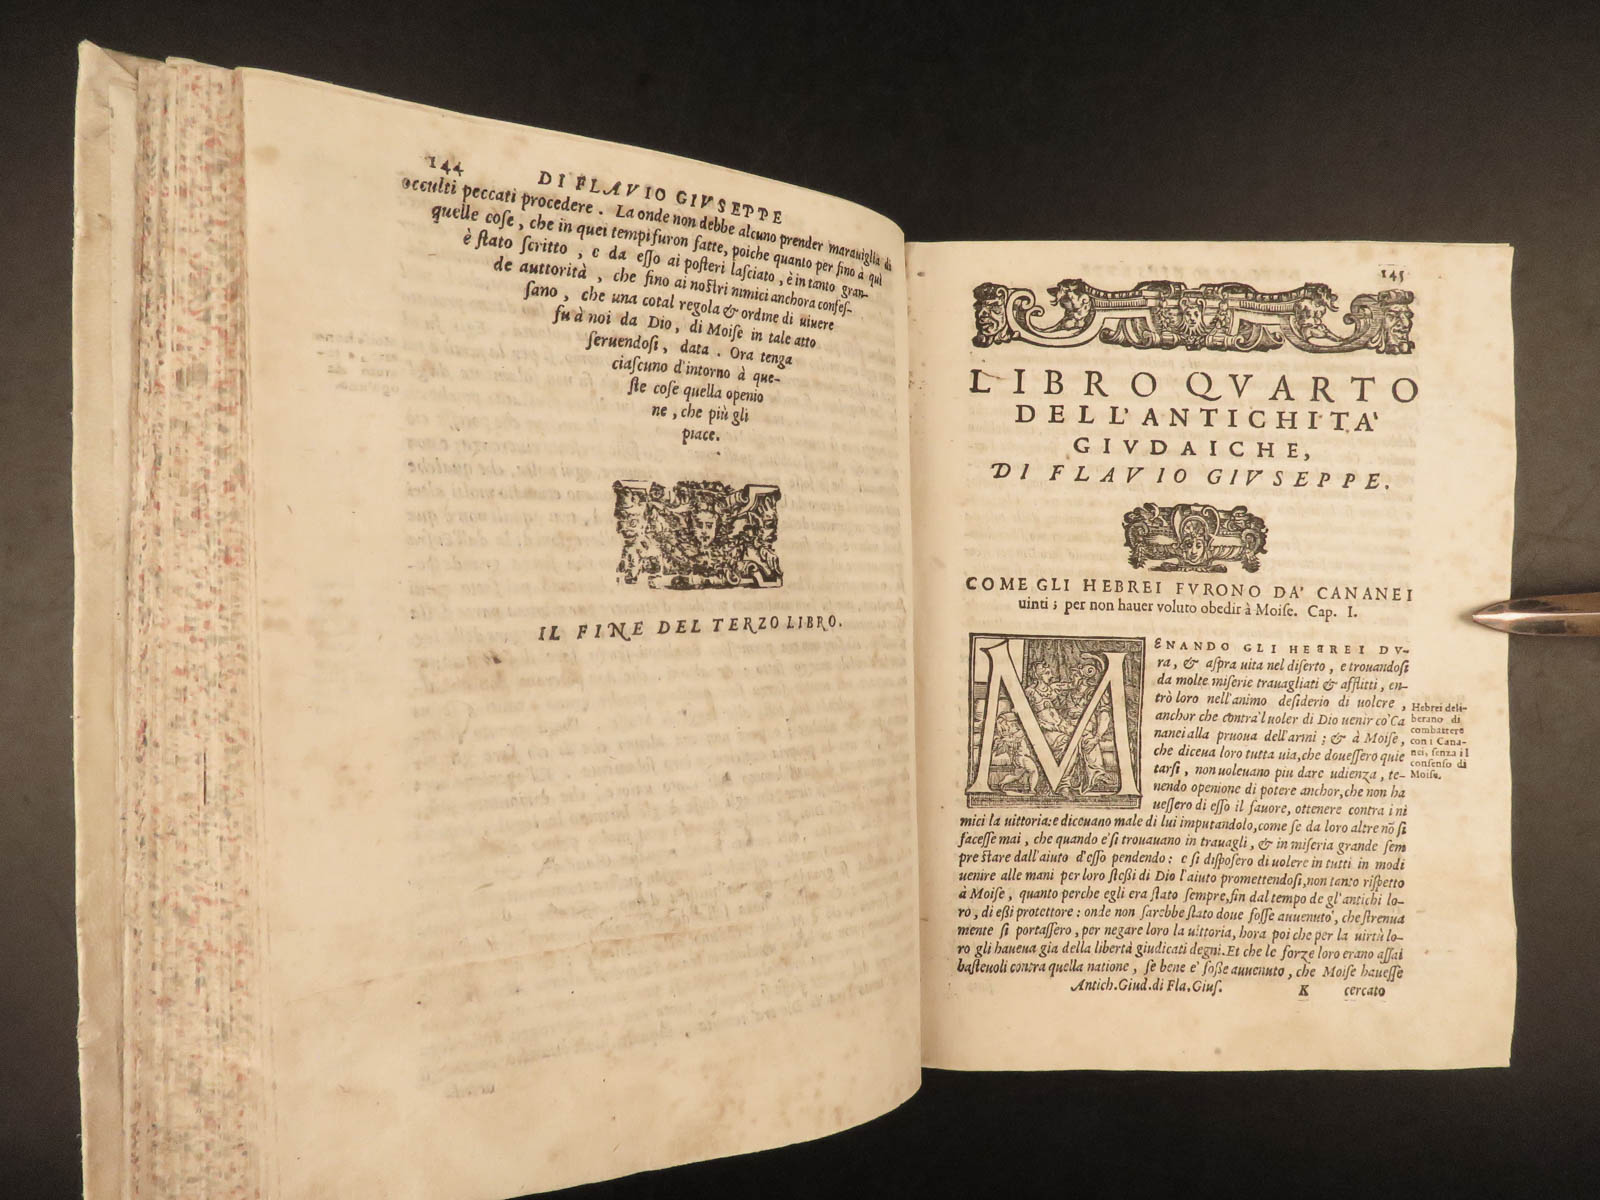 144
DI FLAVIO GIVSEPPE
occulti peccati procedere. La onde non debbe alcuno prender marauiglia di
quelle cose, che in quei tempi furon fatte, poiche quanto per fino à qui
è stato scritto, e da esso ai posteri lasciato, è in tanto gran-
de auttorità, che fino ai nostri nimici anchora confes-
sano, che una cotal regola & ordine di uiuere
fu à noi da Dio, di Moise in tale atto
seruendosi, data. Ora tenga
ciascuno d'intorno à que-
ste cose quella openio
ne, che più gli
piace.
IL FINE DEL TERZO LIBRO.
145
LIBRO QVARTO
DELL'ANTICHITA'
GIVDAICHE,
DI FLAVIO GIVSEPPE.
COME GLI HEBREI FVRONO DA' CANANEI
uinti; per non hauer voluto obedir à Moise. Cap. I.
MENANDO GLI HEBREI DV-
ra, & aspra uita nel diserto, e trouandosi
da molte miserie trauagliati & afflitti, en-
trò loro nell'animo desiderio di uolere,
anchor che contra'l uoler di Dio uenir co' Ca
nanei alla pruoua dell'armi; & à Moise,
che diceua loro tutta uia, che douessero quie
tarsi, non uoleuano piu dare udienza, te-
nendo openione di potere anchor, che non ha
uessero di esso il fauore, ottenere contra i ni
mici la uittoria: e diceuano male di lui imputandolo, come se da loro altre nõ si
facesse mai, che quando e' si trouauano in trauagli, & in miseria grande sem
pre stare dall'aiuto d'esso pendendo: e si disposero di uolere in tutti in modi
uenire alle mani per loro stessi di Dio l'aiuto promettendosi, non tanto rispetto
à Moise, quanto perche egli era stato sempre, fin dal tempo de gl'antichi lo-
ro, di essi protettore: onde non sarebbe stato doue fosse auuenuto, che strenua
mente si portassero, per negare loro la uittoria, hora poi che per la uirtù lo-
ro gli haueua gia della libertà giudicati degni. Et che le forze loro erano assai
basteuoli contra quella natione, se bene e' fosse auuenuto, che Moise hauesse
Hebrei deli-
berano di
combattere
con i Cana-
nei, senza il
consenso di
Moise.
Antich. Giud. di Fla. Gius. K cercato